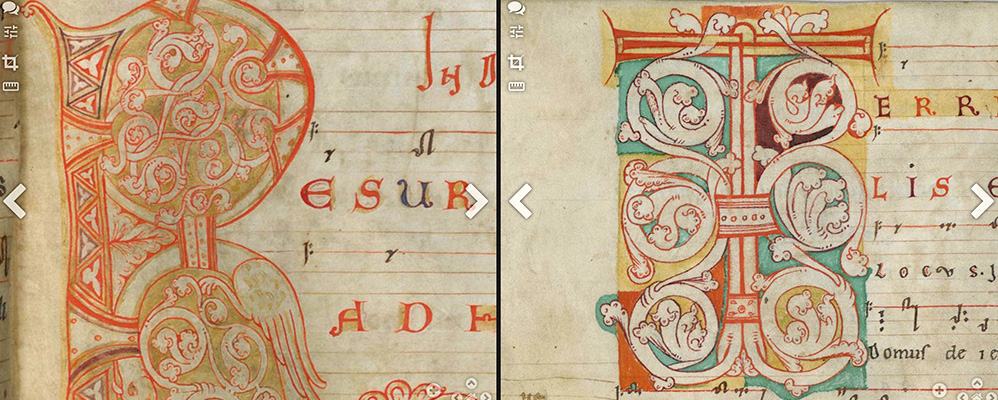 IN
RESUR
ADH
TERR
LIS E
locus.
Domuſ de